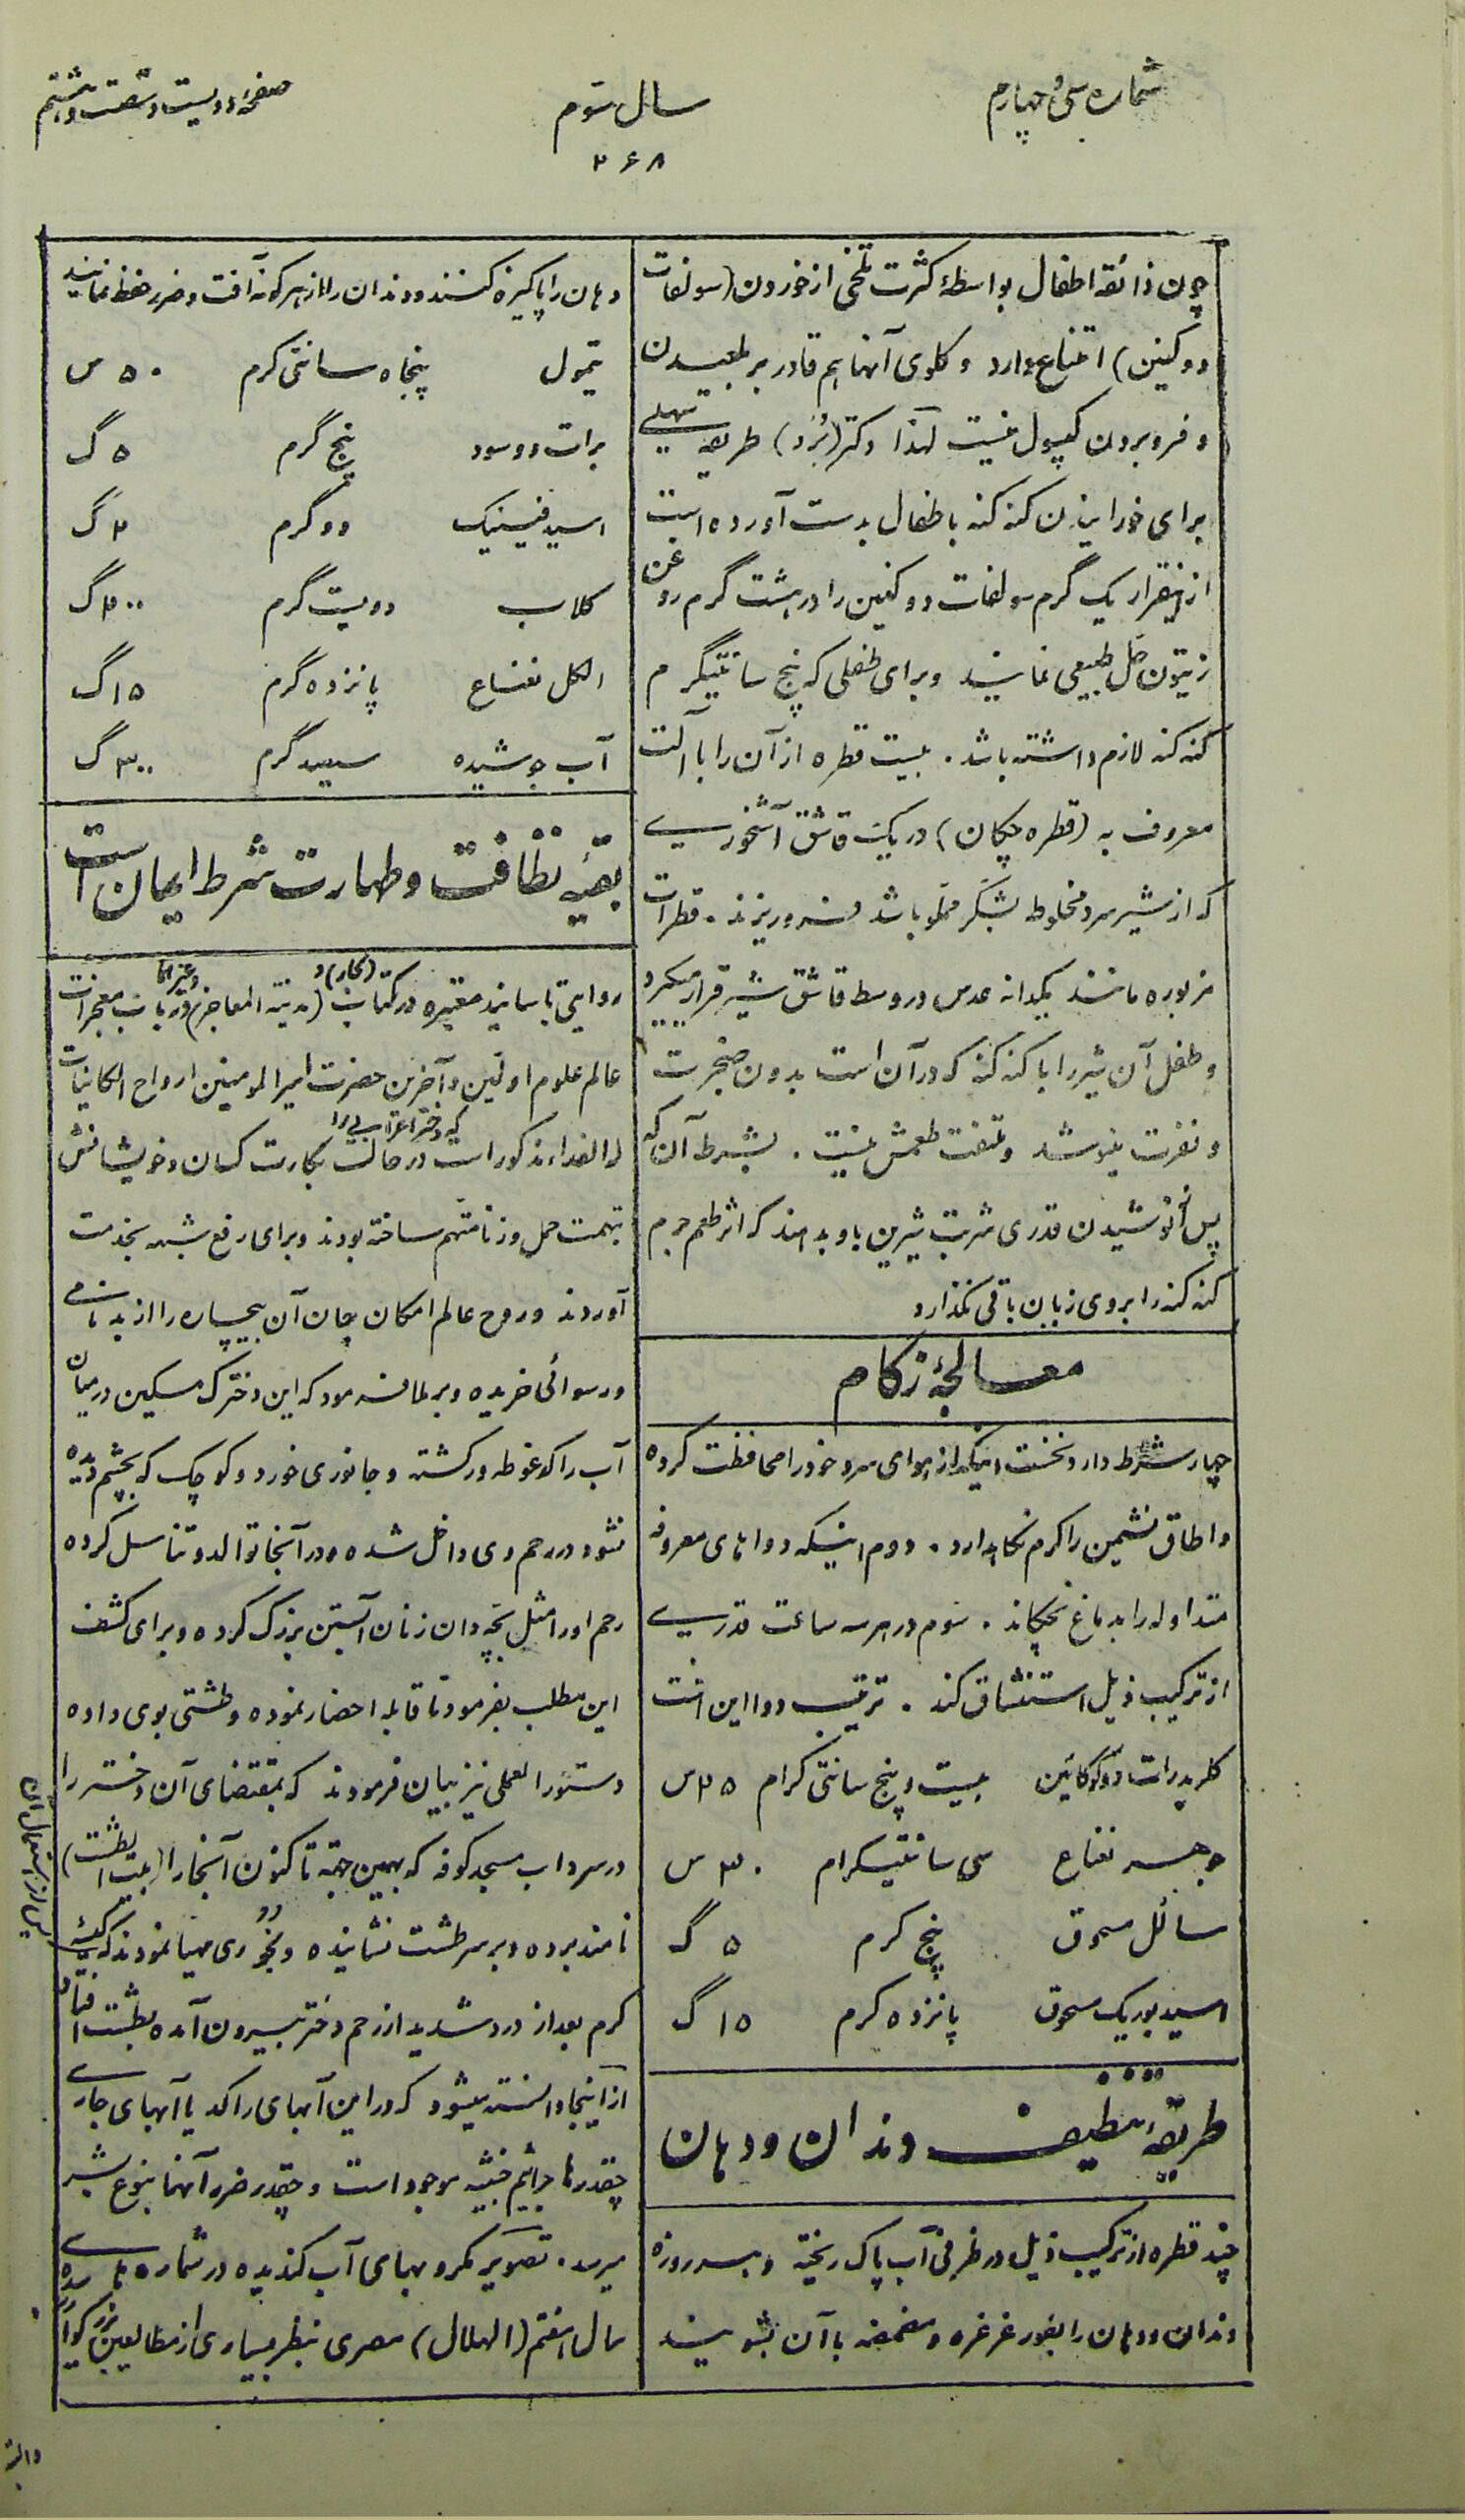 شماره سی و چهارم
سال سوم
صفحهٔ دویست و شصت و هشتم
۲۶۸
چون ذائقه اطفال بواسطهٔ کثرت تلخی از خوردن (سولفات
دوکنین) امتناع دارد و گلوی آنها هم قادر بر بلعیدن
و فرو بردن کپسول نیست لهذا دکتر (بُرَد) طریقه سهلی
برای خورانیدن کنه کنه باطفال بدست آورده است
ازینقرار یک گرم سولفات دوکنین را در هشت گرم روغن
زیتون حل طبیعی نمایند و برای طفلی که پنج سانتیگرم
کنه کنه لازم داشته باشد . بیست قطره از آن را با آلت
معروف به (قطره چکان) در یک قاشق آشخوری
که از شیر سرد مخلوط بشکر مملو باشد فرو ریزند . قطرات
مزبوره مانند یکدانه عدس در وسط قاشق شیر قرار میگیرد
و طفل آن شیر را با کنه کنه که در آن است بدون ضجرت
و نفرت بنوشد و ملتفت طعمش نیست . بشرط آن که
پس از نوشیدن قدری شربت شیرین باو بدهند که اثر طعم جرم
کنه کنه را بروی زبان باقی نگذارد
معالجهٔ زکام
چهار شرط دارد نخست اینکه از هوای سرد خود را محافظت کرده
و اطاق نشیمن را گرم نگاهدارد . دوم اینکه دواهای معروفه
متداوله را بدماغ نچکاند . سوم در هر سه ساعت قدری
از ترکیب ذیل استنشاق کند . ترتیب دوا این است
کلریدرات دوکوکائین بیست و پنج سانتی گرام ۲۵ س
جوهر نعناع سی سانتیگرام ۳۰ س
سائل مسحوق پنج گرم ۵ گ
اسید بوریک مسحوق پانزده گرم ۱۵ گ
طریقهٔ تنظیف دندان و دهان
چند قطره از ترکیب ذیل در ظرفی آب پاک ریخته و هر روزه
دندان و دهان را بفور غرغره و مضمضه با آن بشویند
دهان را پاکیزه کنند و دندان را از هر گونه آفت و ضرر حفظ نمایند
تیمول پنجاه سانتی گرم ۵۰ س
برات دو سود پنج گرم ۵ گ
اسید فینیک دو گرم ۲ گ
گلاب دویست گرم ۲۰۰ گ
الکل نعناع پانزده گرم ۱۵ گ
آب جوشیده سیصد گرم ۳۰۰ گ
بقیهٔ نظافت و طهارت شرط ایمان است
روایتی باسانید معتبره در کتاب (بحار) و (مدینة المعاجز) و غیرها در باب معجزات
عالم علوم اولین و آخرین حضرت امیرالمومنین ارواح الکائنات
له الفداء مذکور است که دختر اعرابی را در حالت بکارت کسان و خویشانش
بتهمت حمل و زنا متهم ساخته بودند و برای رفع شبهه بخدمت
آوردند و روح عالم امکان جان آن بیچاره را از بدنامی
و رسوائی خریده و برملا فرمود که این دخترک مسکین در میان
آب راکد غوطه ور گشته و جانوری خورد و کوچک که بچشم دیده
نشود در رحم وی داخل شده و در آنجا توالد و تناسل کرده
رحم او را مثل بچه دان زنان آبستن بزرگ کرده و برای کشف
این مطلب بفرمود تا قابله احضار نموده و طشتی بوی داده
دستورالعملی نیز بیان فرمودند که بمقتضای آن دختر را
در سرداب مسجد کوفه که بهمین جهة تا کنون آنجا را (بیت الطشت)
نامند برده و بر سر طشت نشانیده و بخوری مهیا نمودند که
پس از استعمال آن
کرم بعد از درد شدید از رحم دختر بیرون آمده بطشت افتاد
از اینجا دانسته میشود که در این آبهای راکد یا آبهای جاری
چقدرها جراثیم خبیثه موجود است و چقدر ضرر آنها بنوع بشر
میرسد . تصویر مکروبهای آب گندیده در شماره
سال هفتم (الهلال) مصری بنظر بسیاری از مطالعین